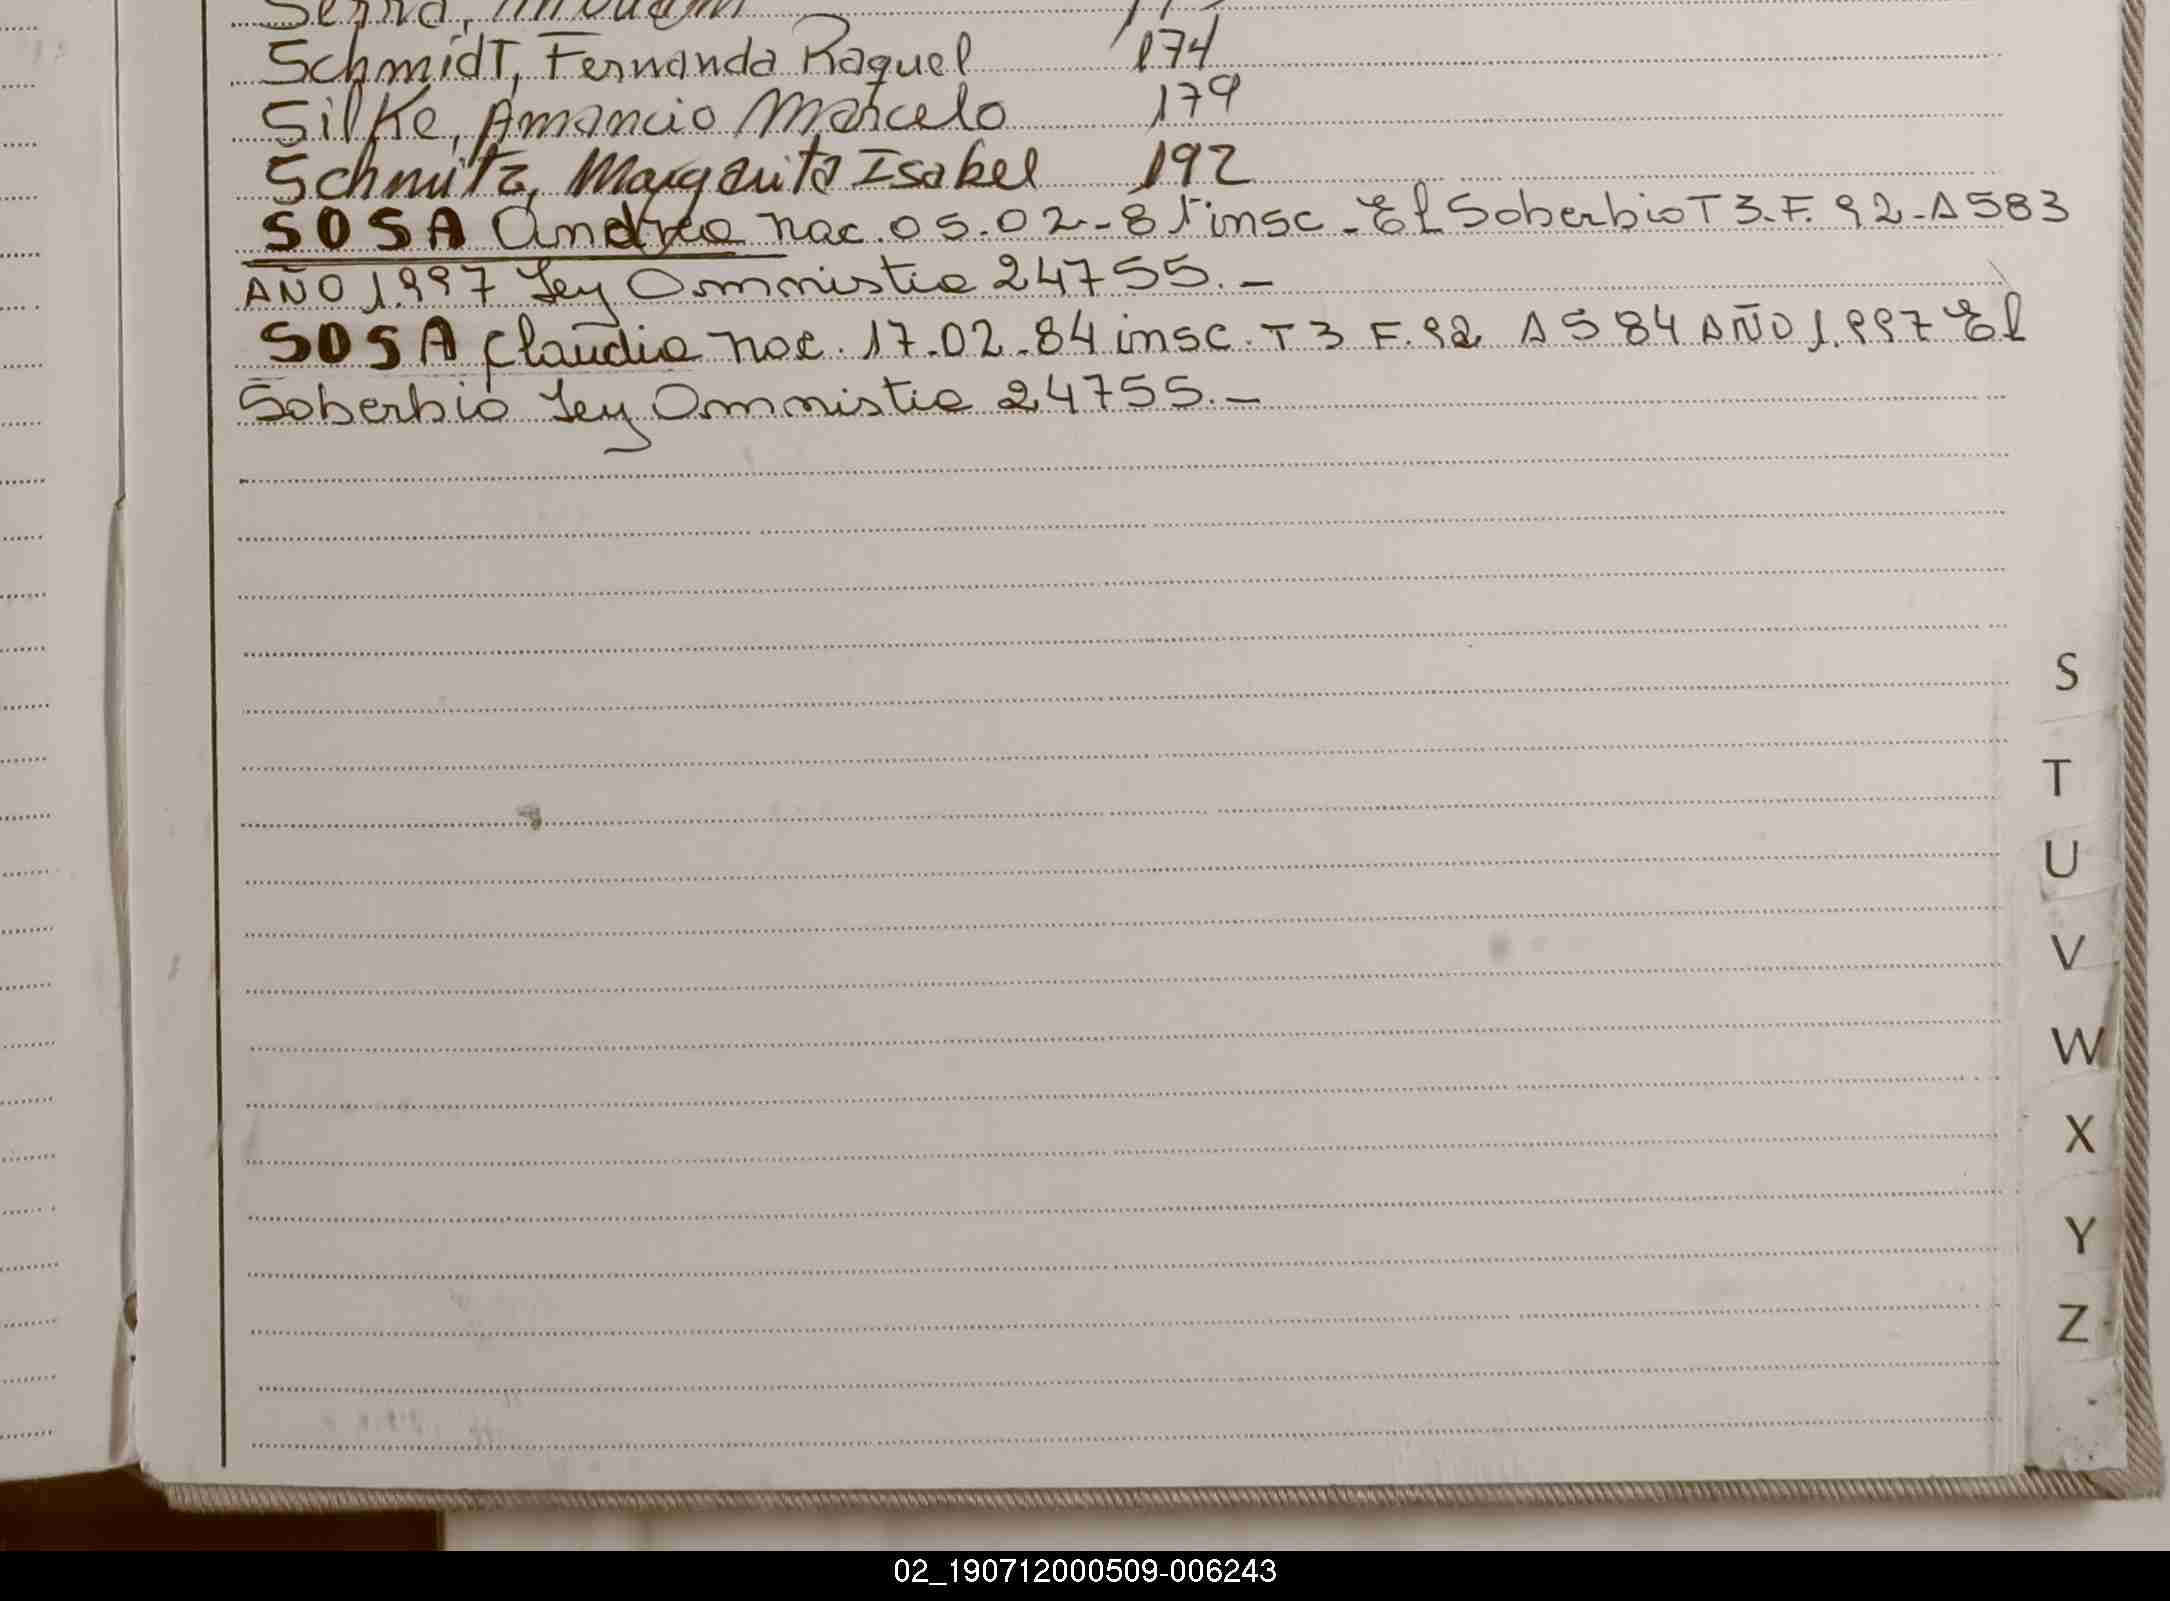 Schmidt, Fernanda Raquel 174
Silke, Amancio Marcelo 179
Schmitz, Margarita Isabel 192
SOSA Andrea nac. 05.02-81 insc - El Soberbio T 3. F. 92 - A 583
AÑO 1.997 Ley Omnistia 24755.-
SOSA Claudia nac. 17.02.84 insc. T 3 F. 92 A 584 AÑO 1.997 El
Soberbio Ley Omnistia 24755.-
S
T
U
V
W
X
Y
Z
02_190712000509-006243